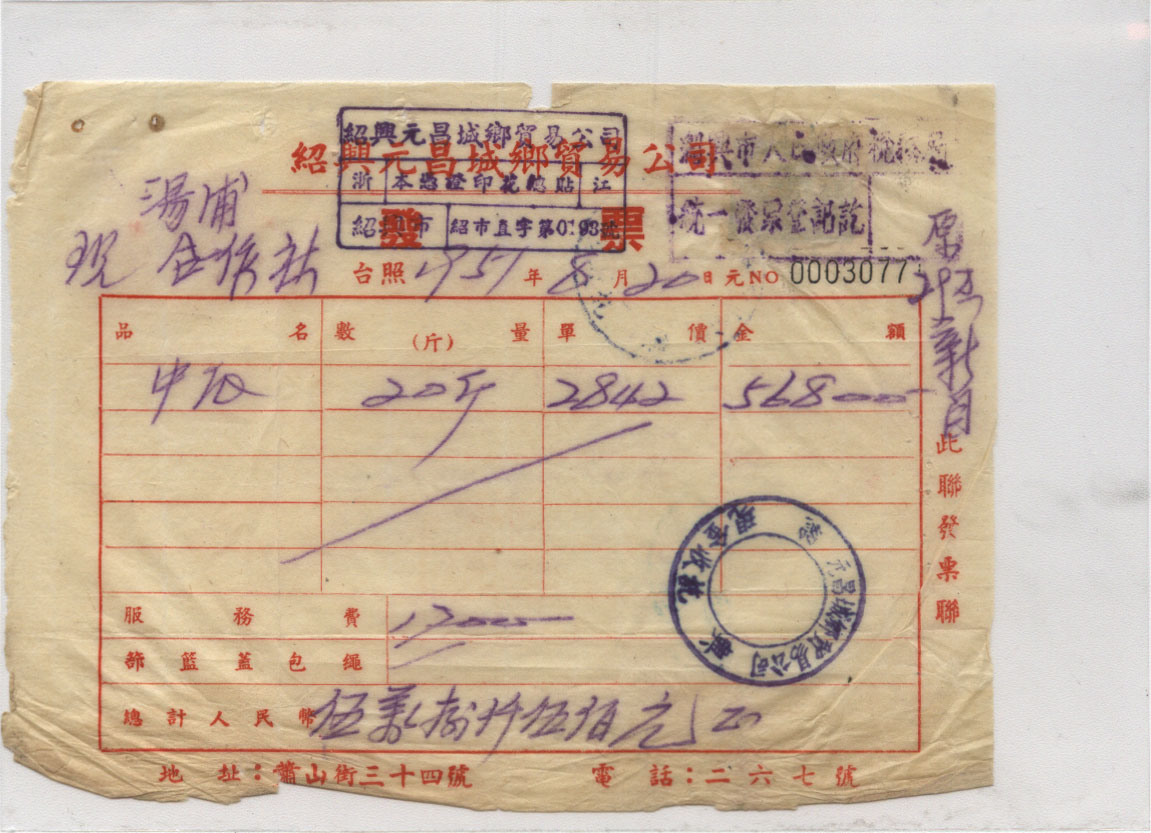 紹興元昌城鄉貿易公司
紹興元昌城鄉貿易公司
浙 本憑證印花總貼 江
紹興市 紹市直字第0193號
紹興市人民政府稅務局
統一發票登記訖
發票
湯浦
合作社
台照 195 年 8 月 20 日 元 NO 0003077
品名 數量(斤) 單價 金額
中 20斤 2842 56800
服務費
簍籃蓋包繩
總計人民幣 伍萬 仟伍佰 元正
地址:蕭山街三十四號 電話:二六七號
此聯發票聯
元昌城鄉貿易公司
現金收訖